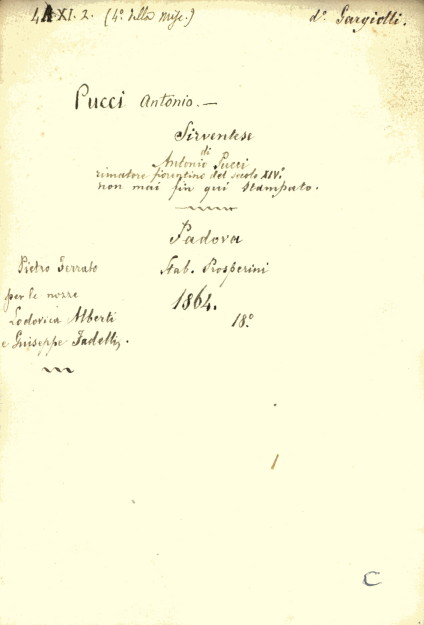 4A XI. 2. (4° della misc.)
d° Gargiolli.
Pucci Antonio. —
Sirventese
di
Antonio Pucci
rimatore fiorentino del secolo XIV°
non mai fin qui stampato.
Padova
Pietro Ferrato
Stab. Prosperini
per le nozze
1864.
Lodovica Alberti
18°
e Giuseppe Fadelli.
C